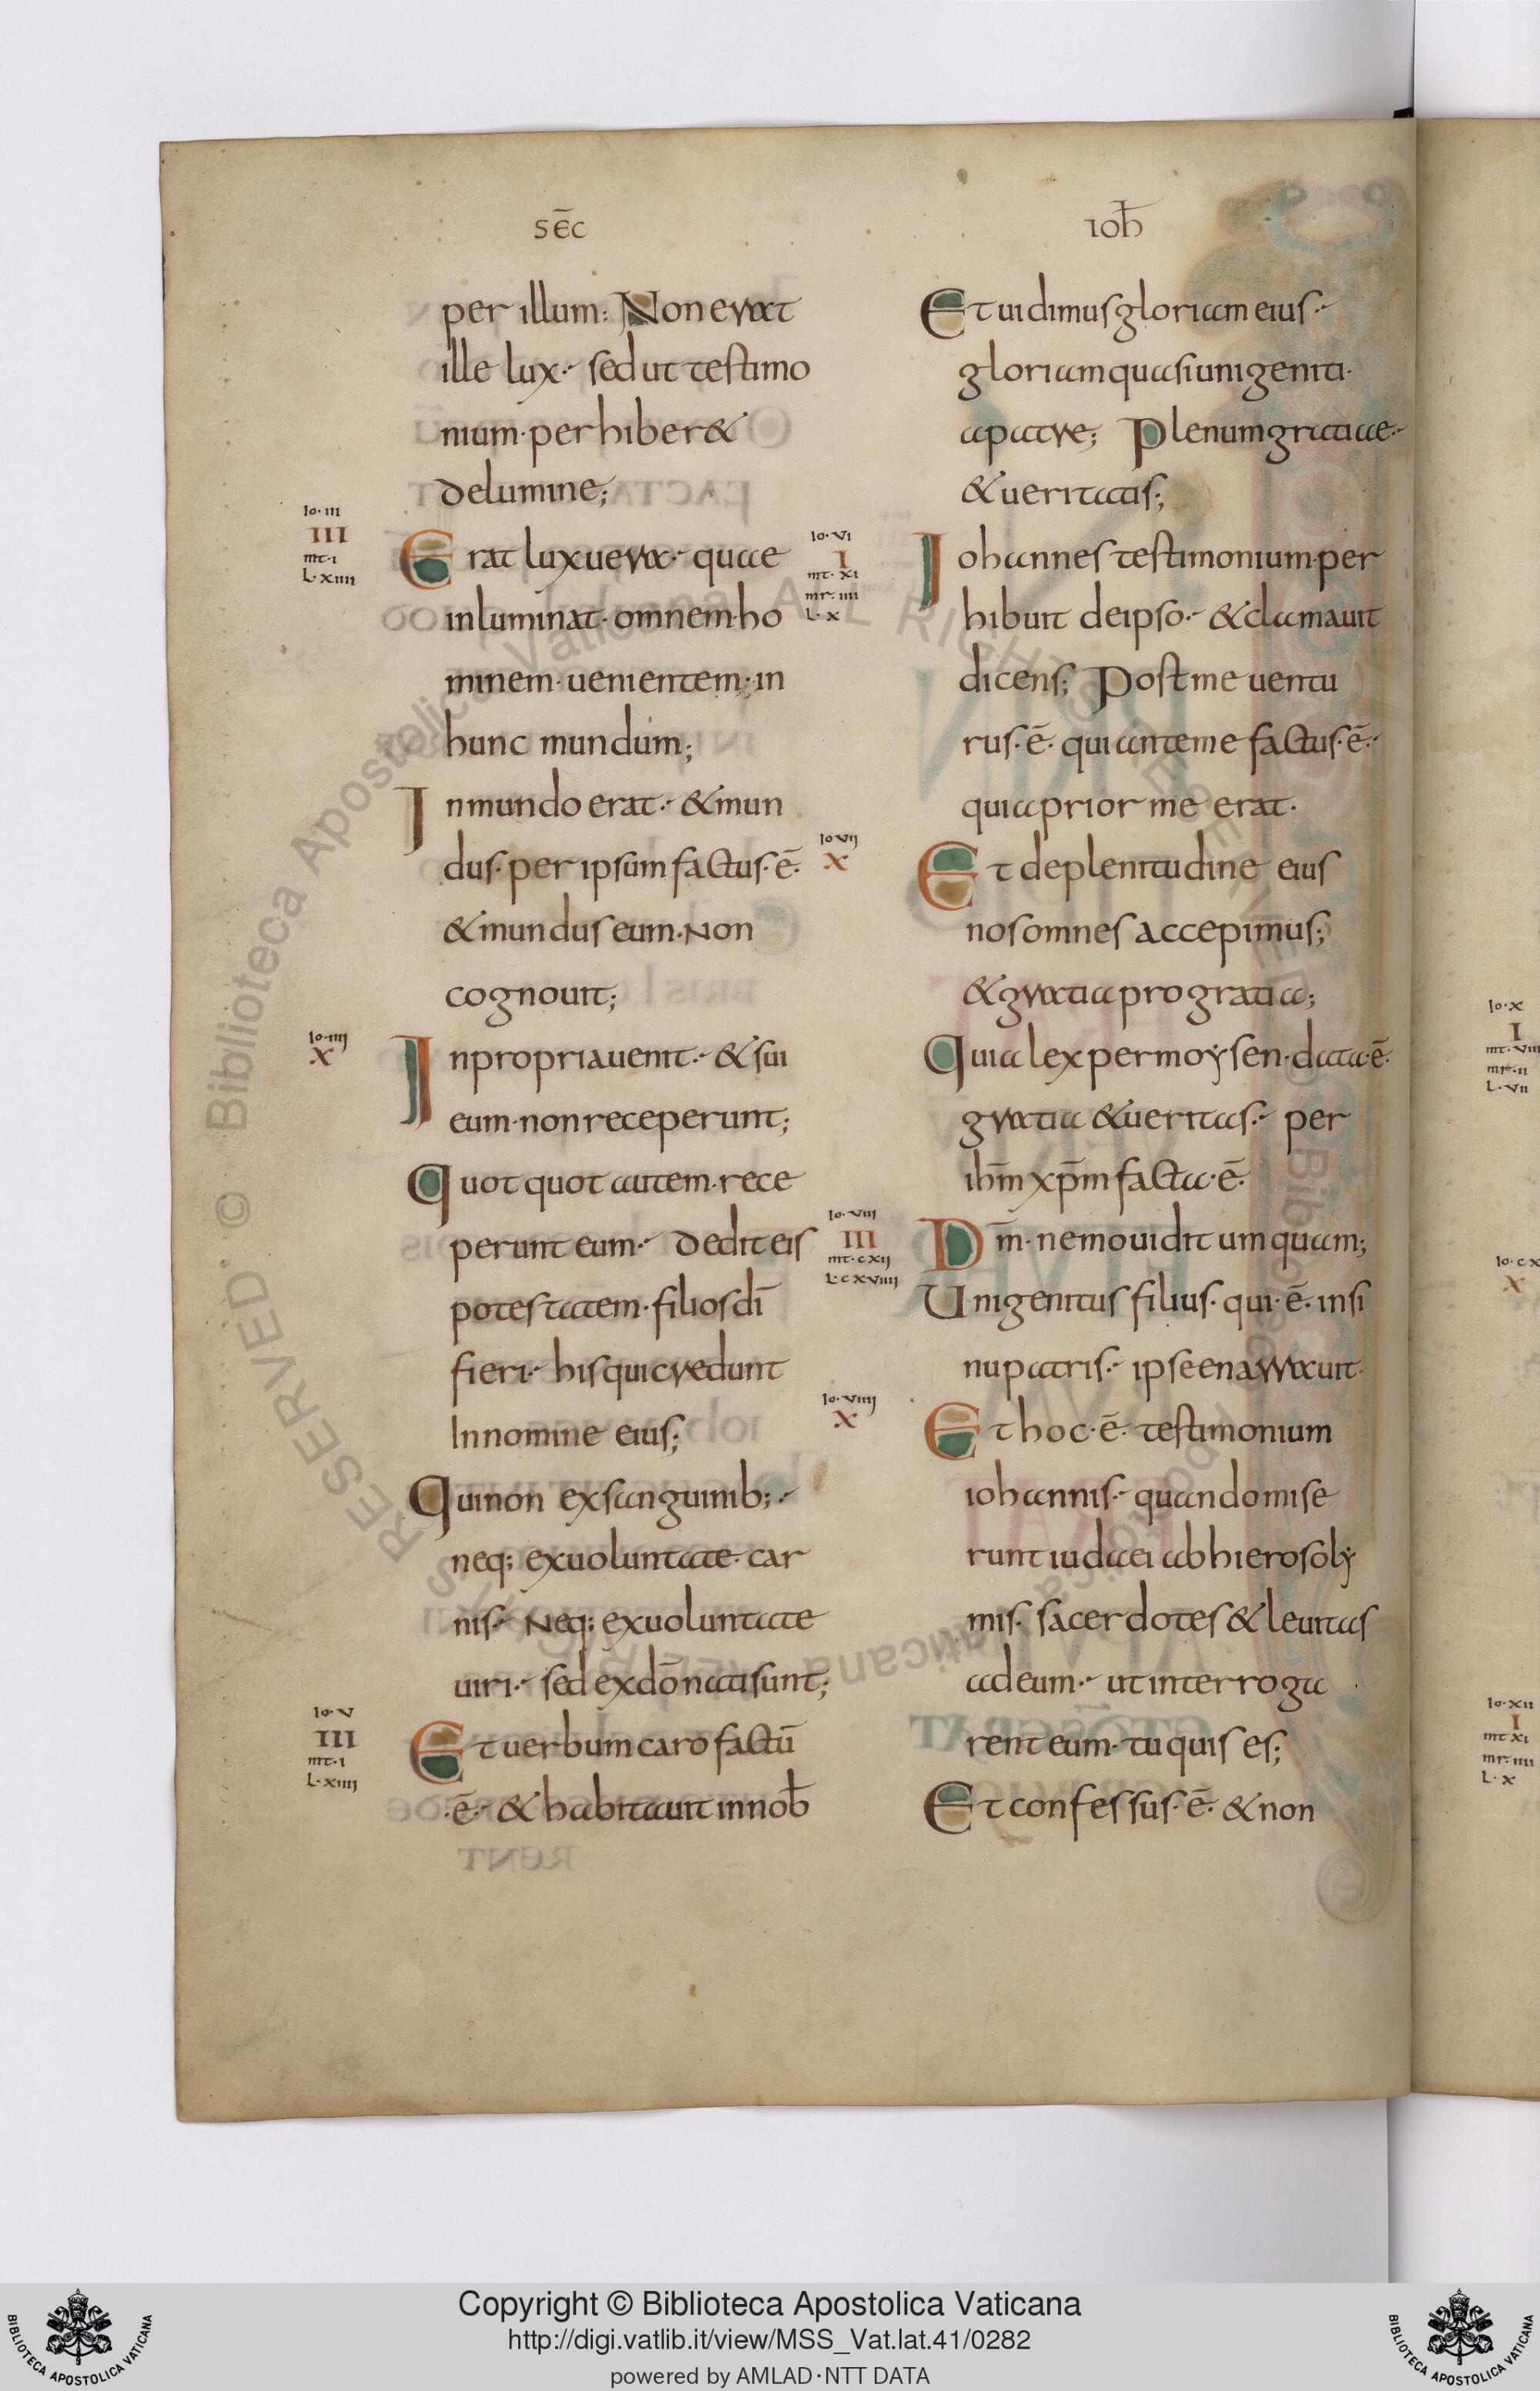 sēc
per illum: Non erat
ille lux· sed ut testimo
nium· perhiber&
delumine;
Io· III
III
mt· I
L· XIIII
Erat lux uera· quae
inluminat· omnem· ho
minem· uenientem· in
hunc mundum;
In mundo erat· & mun
dus· per ipsum factus· ē·
& mundus eum· Non
cognouit;
Io· IIII
X
In propria uenit· & sui
eum· non receperunt;
Quot quot autem· rece
perunt eum· dedit eis
potestatem· filios dī
fieri· his qui credunt
In nomine eius;
Qui non ex sanguinib;·
neq; ex uoluntate· car
nis· Neq; ex uoluntate
uiri· sed ex dō nati sunt;
Io· V
III
mt· I
L· XIIII
Et uerbum caro factū
·ē· & habitauit in nob̄
ioh̄
Et uidimus gloriam eius·
gloriam quasi unigeniti·
a patre; Plenum gratiae·
& ueritatis;
Io· VI
I
mt· XI
mr· IIII
L· X
Iohannes testimonium· per
hibuit de ipso· & clamauit
dicens; Post me uentu
rus· ē· qui ante me factus· ē·
quia prior me erat·
Io VII
X
Et de plenitudine eius
nos omnes accepimus;
& gratia pro gratia;
Quia lex per moysen· data· ē·
gratia & ueritas· per
ih̄m xp̄m facta· ē·
Io· VIII
III
mt· CXII
L· CXVIIII
Dm̄· nemo uidit umquam;
Unigenitus filius· qui· ē· in si
nu patris· ipse enarrauit·
Io· VIIII
X
Et hoc· ē· testimonium
iohannis· quando mise
runt iudaei ab hierosoly
mis· sacerdotes & leuitas
ad eum· ut interroga
rent eum· tu quis es;
Et confessus· ē· & non
Io· X
I
mt· VIII
mr· II
L· VII
Io· CX
X
Io· XII
I
mt XI
mr· IIII
L· X
© Biblioteca Apostolica Vaticana ALL RIGHTS RESERVED
Copyright © Biblioteca Apostolica Vaticana
http://digi.vatlib.it/view/MSS_Vat.lat.41/0282
powered by AMLAD·NTT DATA
BIBLIOTECA APOSTOLICA VATICANA
BIBLIOTECA APOSTOLICA VATICANA